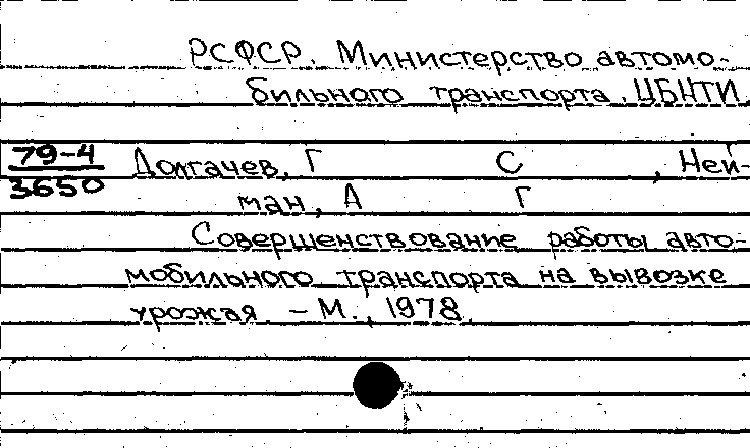 РСФСР. Министерство автомо-
бильного транспорта. ЦБНТИ
79-4
3650
Долгачев, Г С , Ней-
ман, А Г
Совершенствование работы авто-
мобильного транспорта на вывозке
урожая. – М., 1978.